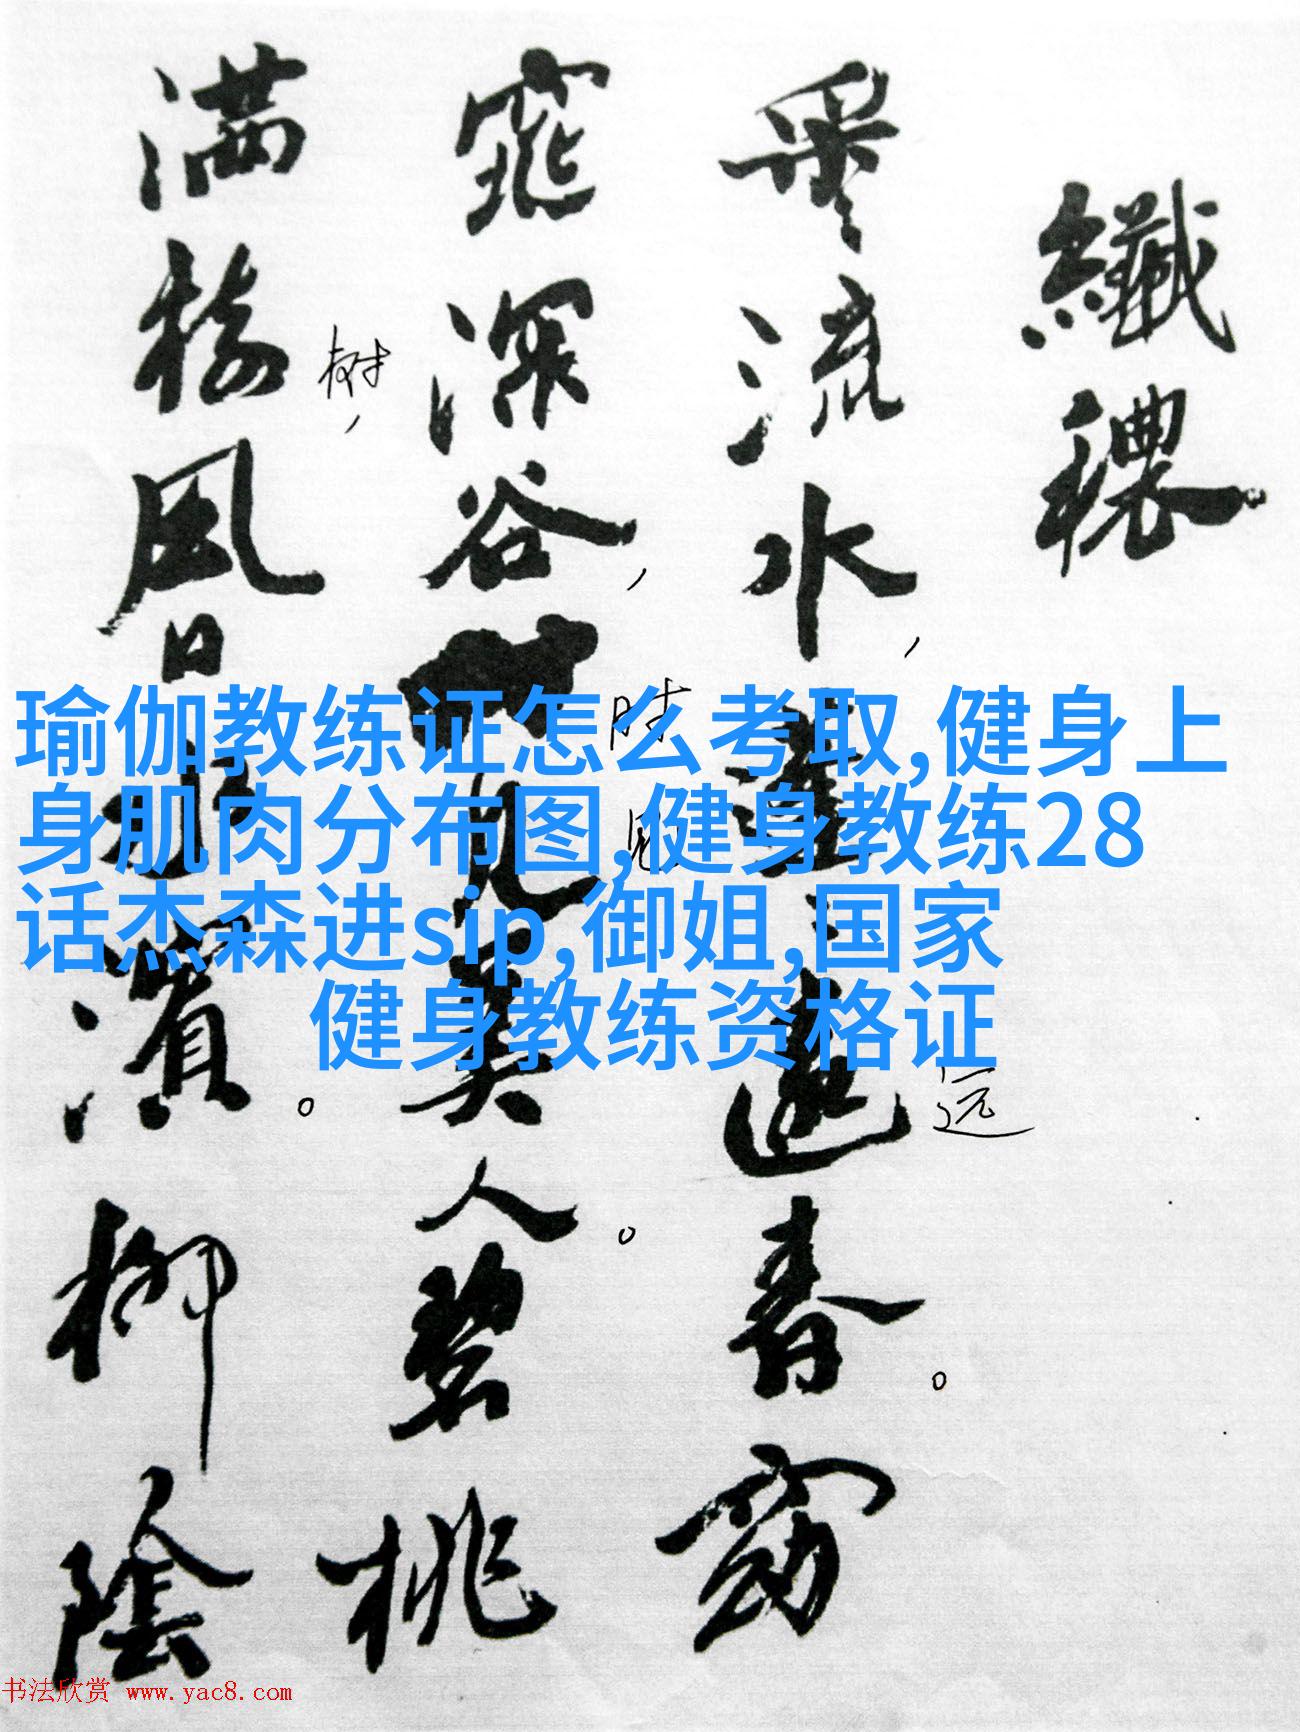 纖穠
采流水,蓬蓬遠春。窈
窕深谷,時見美人。碧桃
满樹,風日水濱。柳陰
树
时
见
远
瑜伽教练证怎么考取,健身上
身肌肉分布图,健身教练28
话杰森进sip,御姐,国家
健身教练资格证
书法欣赏 www.yac8.com